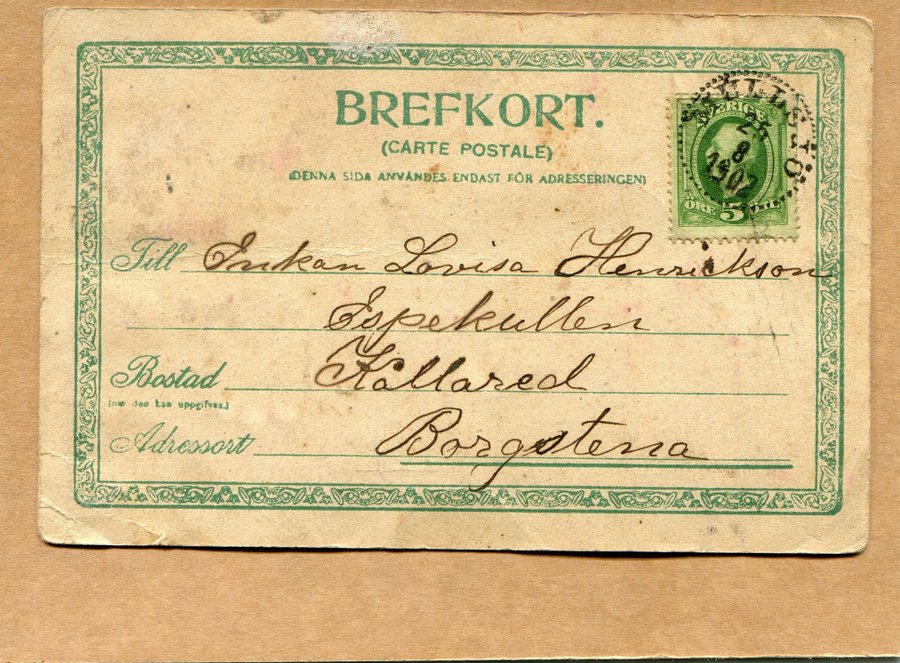 BREFKORT.
(CARTE POSTALE)
(DENNA SIDA ANVÄNDES ENDAST FÖR ADRESSERINGEN)
SVERIGE
MULLSJÖ
24
8
1902
ÖRE 5
Till Enkan Lovisa Henrikson
Espekullen
Bostad Källared
(om den kan uppgifvas.)
Adressort Borgstena